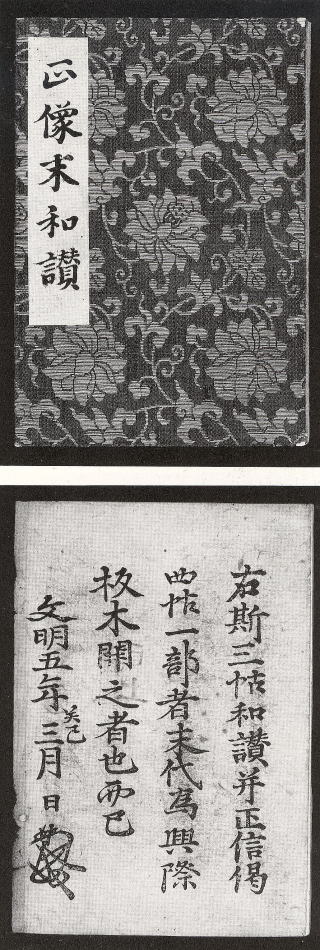 正像末和讃
右斯三帖和讃并正信偈
四帖一部者末代為興際
板木開之者也而已
文明五年癸巳三月 日